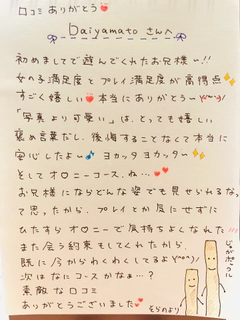 口コミ ありがとう
Daiyamatoさんへ
初めましてで遊んでくれたお兄様~!!
女の子満足度とプレイ満足度が高得点
すごく嬉しい本当にありがとう~
「写真より可愛い」は、とっても嬉しい
褒め言葉だし、後悔することなくて本当に
安心したよ~♪ ヨカッタ ヨカッタ~
そしてオ○ニーコース、ね…
お兄様にならどんな姿でも見せれるなっ
て思ったから、プレイとか気にせずに
ひたすらオ○ニーで気持ちよくなれた!!!
また会う約束もしてくれたから、
既に今からわくわくしてるよ
次はなにコースかなぁ…?
素敵な口コミ
ありがとうございました
じゃがポックル
そらのより